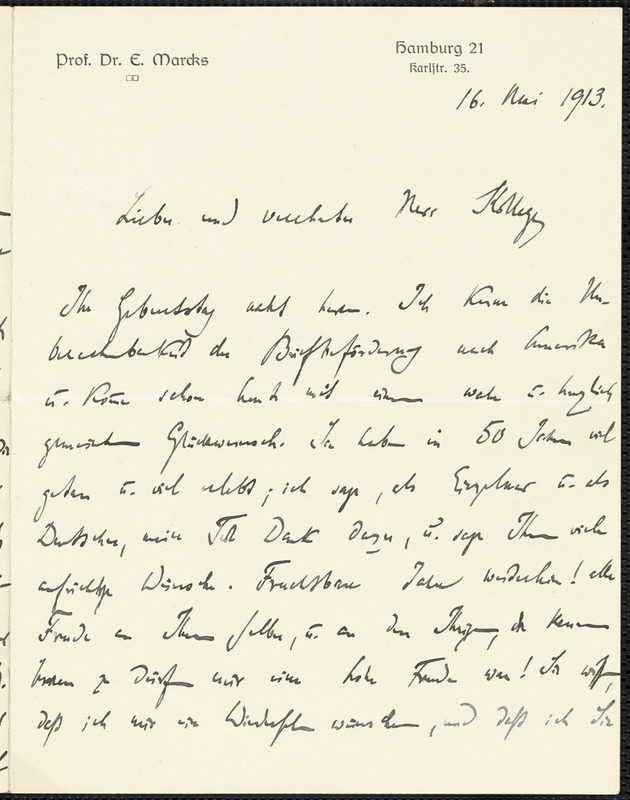 Prof. Dr. E. Marcks
Hamburg 21
Karlstr. 35.
16. Mai 1913.
Lieber und verehrter Herr Kollege,
Ihr Geburtstag naht heran. Ich kenne die Un-
berechenbarkeit der Briefbeförderung nach Amerika
u. komme schon heute mit einem wahr u. herzlich
gemeinten Glückwunsch. Sie haben in 50 Jahren viel
getan u. viel erlebt; ich sage, als Einzelner u. als
Deutscher, meinen Dank dazu, u. sage Ihnen viele
aufrichtige Wünsche. Fruchtbare Jahre weiterhin! alle
Freude an Ihnen selber, u. an den Ihrigen, die kennen
lernen zu dürfen mir eine hohe Freude war! Sie wissen,
daß ich mir ein Wiedersehen wünsche, und daß ich Sie